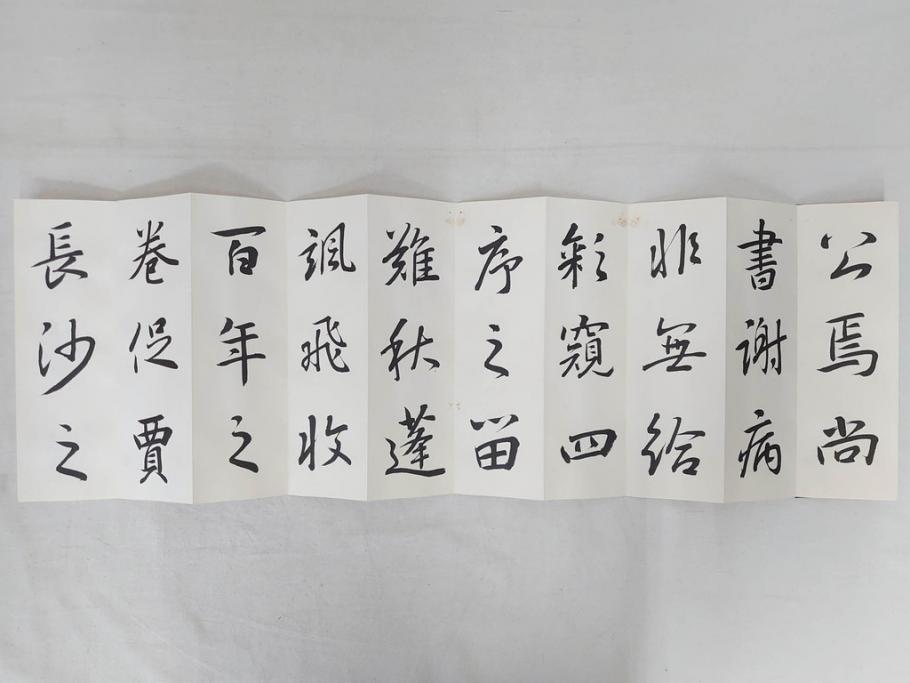 公焉尚
書謝病
非無給
彩窺四
序之留
難秋蓬
颯飛收
百年之
卷促賈
長沙之